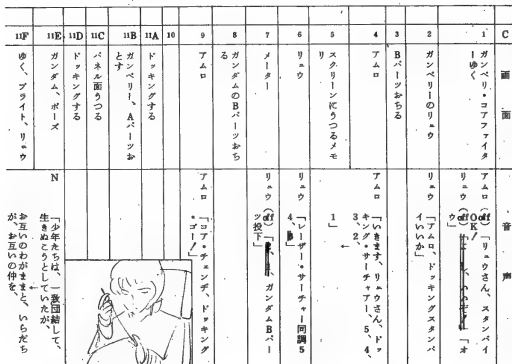 C 画面 音声
1 ガンペリ・コアファイタ
ーゆく
アムロ(off)「リュウさん、スタンバイ
OK!」
リュウ(off)「オ
ウ」
2 ガンペリーのリュウ
リュウ「アムロ、ドッキングスタンバ
イいいか」
3 Bパーツおちる
4 アムロ
アムロ「いきます、リュウさん、ドッ
キング・サーチャアー、5、4、
3、2、←
5 スクリーンにうつるメモ
リ
1」
6 リュウ
リュウ「レーザー・サーチャー同調5
4、」
7 メーター
リュウ(off)「ガンダムBパー
ツ投下」
8 ガンダムのBパーツおち
る
9 アムロ
アムロ「コア・チェンヂ、ドッキング
・ゴー!」
10
11A ドッキングする
11B ガンペリー、Aパーツお
とす
11C パネル面うつる
11D ドッキングする
11E ガンダム、ポーズ
N「少年たちは、一致団結して、
生きぬこうとしていたが、←
11F ゆく、ブライト、リュウ
お互いのわがままと、いらだち
が、お互いの仲を、